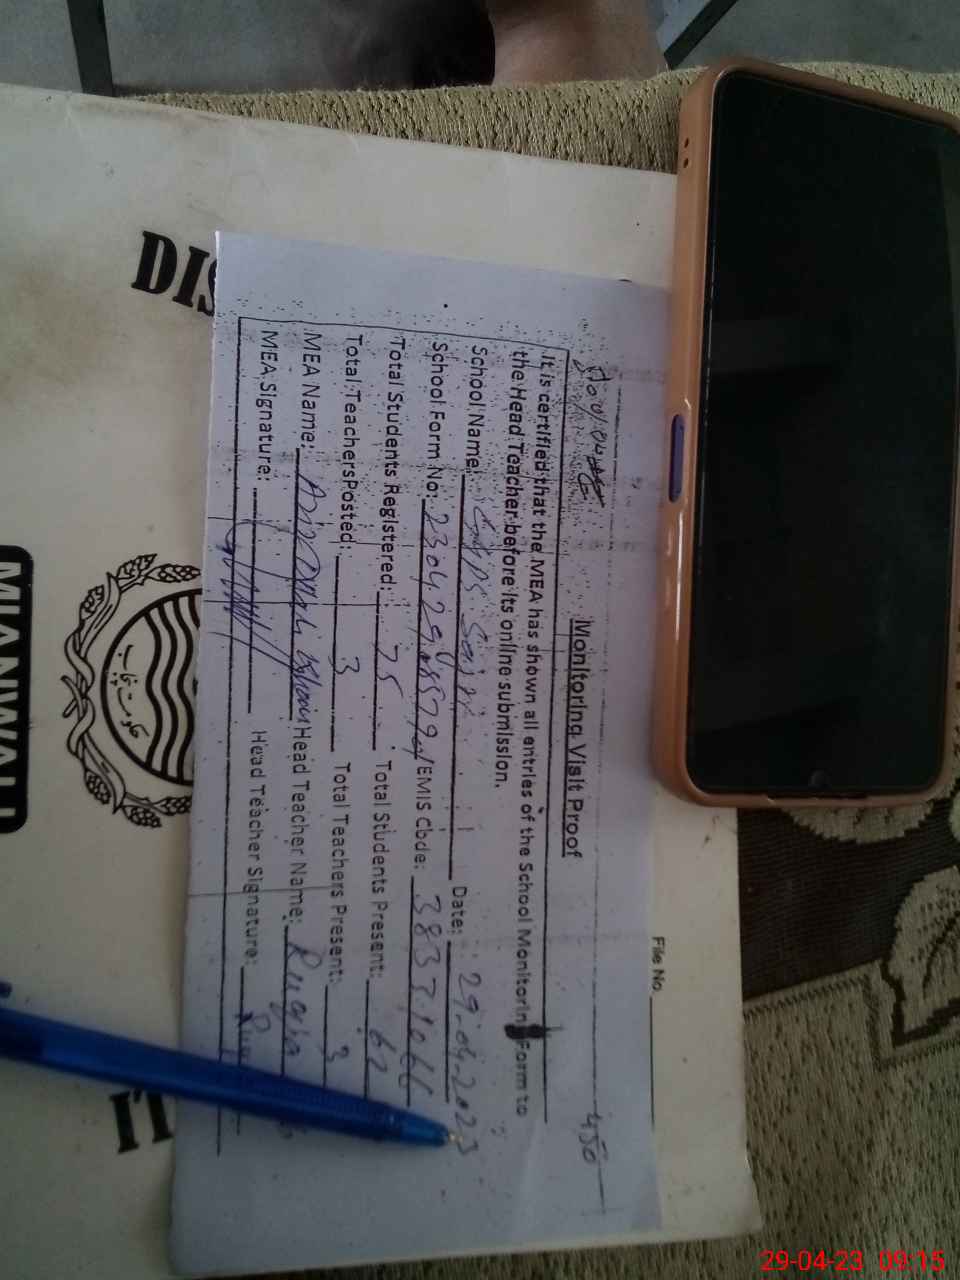 File No.
450
Monitoring Visit Proof
It is certified that the MEA has shown all entries of the School Monitorin Form to
the Head Teacher before its online submission.
School Name: Date: 29-04-2023
School Form No: EMIS Code: 38331066
Total Students Registered: 75 Total Students Present: 62
Total Teachers Posted: 3 Total Teachers Present: 3
MEA Name: Head Teacher Name: Ruqia
MEA Signature: Head Teacher Signature:
DIS
حکومت پنجاب
MIANWALI
29-04-23 09:15